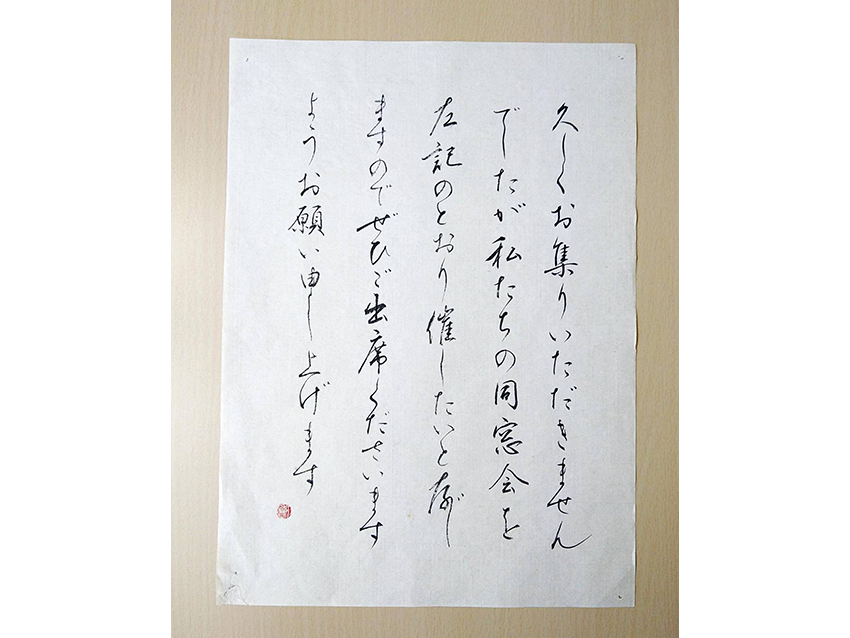 久しくお集りいただきません
でしたが私たちの同窓会を
左記のとおり催したいと存じ
ますのでぜひご出席くださいます
ようお願い申し上げます